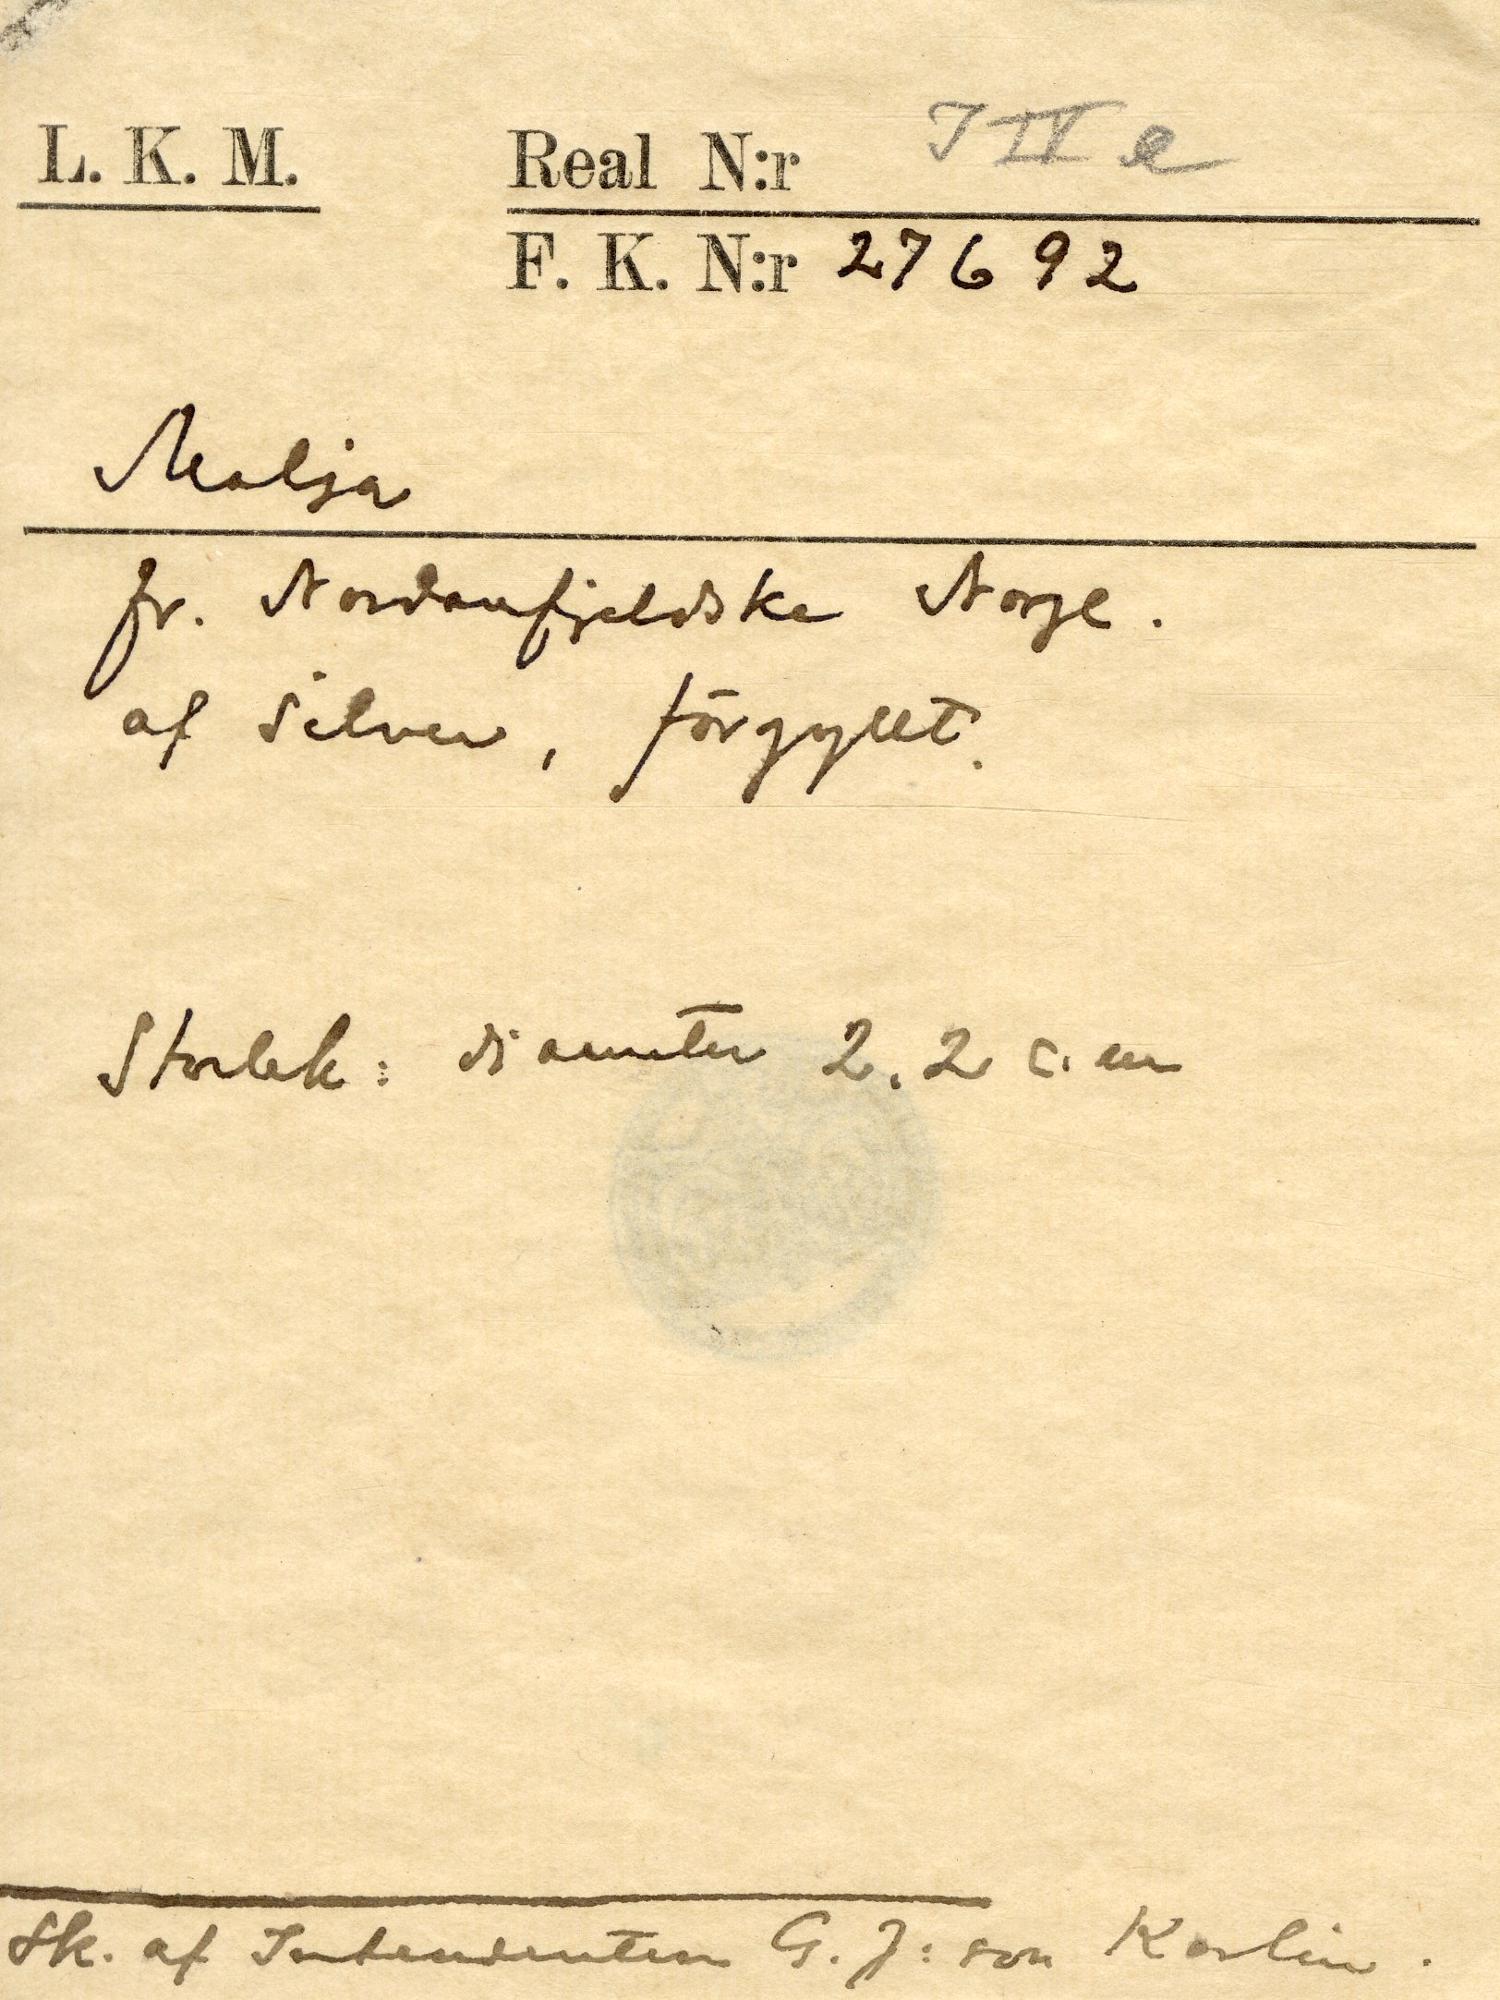 L. K. M.
Real N:r J IV e
F. K. N:r 27692
Malja
fr. Nordanfjeldske Norge.
af silver, förgyllt.
Storlek: diameter 2.2 c.m
Sk. af Intendenten G. J:son Karlin.